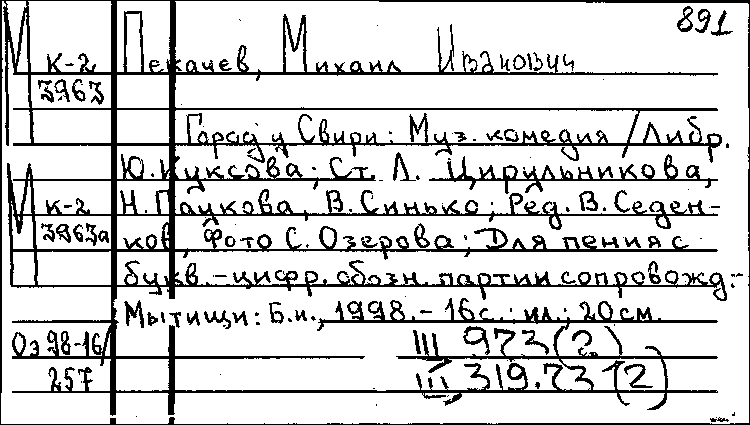 891
М К-2 Пекачев, Михаил Иванович
3963
Город у Свири: Муз. комедия / Либр.
Ю. Куксова; Ст. Л. Цирульникова,
М К-2 Н. Паукова, В. Синько; Ред. В. Седен-
3963а ков, Фото С. Озерова; Для пения с
букв.-цифр. обозн. партии сопровожд.-
Мытищи: Б.и., 1998. - 16 с.: ил.; 20 см.
Оз 98-16/ III 973 (2)
257 III, 319.73 (2)